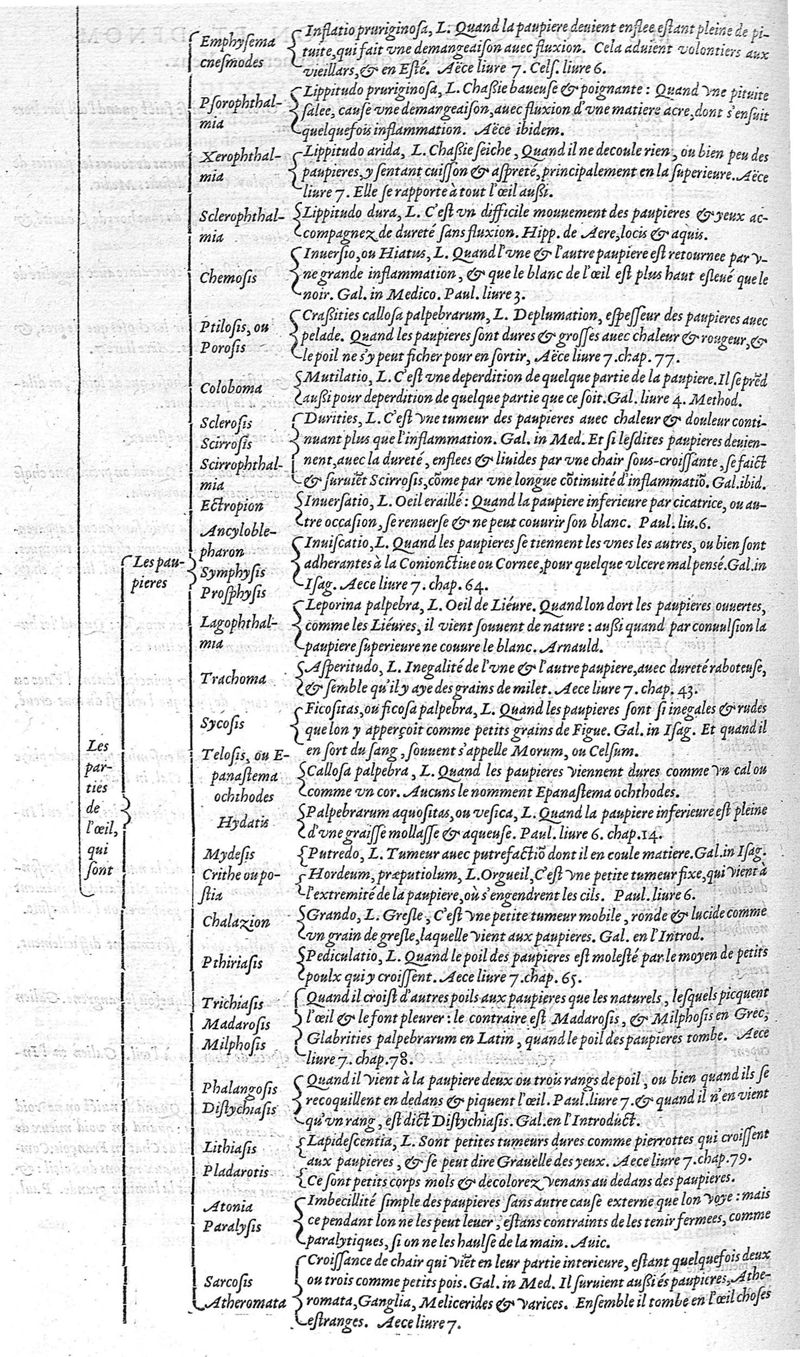 Emphysema
cnesmodes
Inflatio pruriginosa, L. Quand la paupiere deuient enflee estant pleine de pi-
tuite, qui fait vne demangeaison auec fluxion. Cela aduient volontiers aux
vieillars, & en Esté. Aëce liure 7. Cels. liure 6.
Psorophthal-
mia
Lippitudo pruriginosa, L. Chaßie baueuse & poignante: Quand vne pituite
salee, cause vne demangeaison, auec fluxion d'vne matiere acre, dont s'ensuit
quelquefois inflammation. Aëce ibidem.
Xerophthal-
mia
Lippitudo arida, L. Chaßie seiche, Quand il ne decoule rien, ou bien peu des
paupieres, y sentant cuisson & aspreté, principalement en la superieure. Aëce
liure 7. Elle se rapporte à tout l'œil außi.
Sclerophthal-
mia
Lippitudo dura, L. C'est vn difficile mouuement des paupieres & yeux ac-
compagnez de dureté sans fluxion. Hipp. de Aere, locis & aquis.
Chemosis
Inuersio, ou Hiatus, L. Quand l'vne & l'autre paupiere est retournee par v-
ne grande inflammation, & que le blanc de l'œil est plus haut esleué que le
noir. Gal. in Medico. Paul. liure 3.
Ptilosis, ou
Porosis
Craßities callosa palpebrarum, L. Deplumation, espesseur des paupieres auec
pelade. Quand les paupieres sont dures & grosses auec chaleur & rougeur, &
le poil ne s'y peut ficher pour en sortir, Aëce liure 7. chap. 77.
Coloboma
Mutilatio, L. C'est vne deperdition de quelque partie de la paupiere. Il se prẽd
außi pour deperdition de quelque partie que ce soit. Gal. liure 4. Method.
Sclerosis
Scirrosis
Scirrophthal-
mia
Durities, L. C'est vne tumeur des paupieres auec chaleur & douleur conti-
nuant plus que l'inflammation. Gal. in Med. Et si lesdites paupieres deuien-
nent, auec la dureté, enflees & liuides par vne chair sous-croissante, se faict
& suruiẽt Scirrosis, cõme par vne longue cõtinuité d'inflammatiõ. Gal. ibid.
Ectropion
Inuersatio, L. Oeil eraillé: Quand la paupiere inferieure par cicatrice, ou au-
tre occasion, se renuerse & ne peut couurir son blanc. Paul. liu. 6.
Ancyloble-
pharon
Symphysis
Prosphysis
Inuiscatio, L. Quand les paupieres se tiennent les vnes les autres, ou bien sont
adherantes à la Conionctiue ou Cornee, pour quelque vlcere mal pensé. Gal. in
Isag. Aece liure 7. chap. 64.
Les pau-
pieres
Lagophthal-
mia
Leporina palpebra, L. Oeil de Liéure. Quand lon dort les paupieres ouuertes,
comme les Liéures, il vient souuent de nature: außi quand par conuulsion la
paupiere superieure ne couure le blanc. Arnauld.
Trachoma
Asperitudo, L. Inegalité de l'vne & l'autre paupiere, auec dureté raboteuse,
& semble qu'il y aye des grains de milet. Aece liure 7. chap. 43.
Sycosis
Ficositas, ou ficosa palpebra, L. Quand les paupieres sont si inegales & rudes
que lon y apperçoit comme petits grains de Figue. Gal. in Isag. Et quand il
en sort du sang, souuent s'appelle Morum, ou Celsum.
Les
par-
ties
de
l'œil,
qui
sont
Telosis, ou E-
panastema
ochthodes
Callosa palpebra, L. Quand les paupieres viennent dures comme vn cal ou
comme vn cor. Aucuns le nomment Epanastema ochthodes.
Hydatis
Palpebrarum aquositas, ou vesica, L. Quand la paupiere inferieure est pleine
d'vne graisse mollasse & aqueuse. Paul. liure 6. chap. 14.
Mydesis
Putredo, L. Tumeur auec putrefactiõ dont il en coule matiere. Gal. in Isag.
Crithe ou po-
stia
Hordeum, præputiolum, L. Orgueil, C'est vne petite tumeur fixe, qui vient à
l'extremité de la paupiere, où s'engendrent les cils. Paul. liure 6.
Chalazion
Grando, L. Gresle, C'est vne petite tumeur mobile, ronde & lucide comme
vn grain de gresle, laquelle vient aux paupieres. Gal. en l'Introd.
Pthiriasis
Pediculatio, L. Quand le poil des paupieres est molesté par le moyen de petits
poulx qui y croissent. Aece liure 7. chap. 65.
Trichiasis
Madarosis
Milphosis
Quand il croist d'autres poils aux paupieres que les naturels, lesquels picquent
l'œil & le font pleurer: le contraire est Madarosis, & Milphosis en Grec,
Glabrities palpebrarum en Latin, quand le poil des paupieres tombe. Aece
liure 7. chap. 78.
Phalangosis
Distychiasis
Quand il vient à la paupiere deux ou trois rangs de poil, ou bien quand ils se
recoquillent en dedans & piquent l'œil. Paul. liure 7. & quand il n'en vient
qu'vn rang, est dict Distychiasis. Gal. en l'Introduct.
Lithiasis
Lapidescentia, L. Sont petites tumeurs dures comme pierrottes qui croissent
aux paupieres, & se peut dire Grauelle des yeux. Aece liure 7. chap. 79.
Pladarotis
Ce sont petits corps mols & decolorez venans au dedans des paupieres.
Atonia
Paralysis
Imbecillité simple des paupieres sans autre cause externe que lon voye: mais
ce pendant lon ne les peut leuer, estans contraints de les tenir fermees, comme
paralytiques, si on ne les haulse de la main. Auic.
Sarcosis
Atheromata
Croissance de chair qui viẽt en leur partie interieure, estant quelquefois deux
ou trois comme petits pois. Gal. in Med. Il suruient außi és paupieres, Athe-
romata, Ganglia, Melicerides & varices. Ensemble il tombe en l'œil choses
estranges. Aece liure 7.